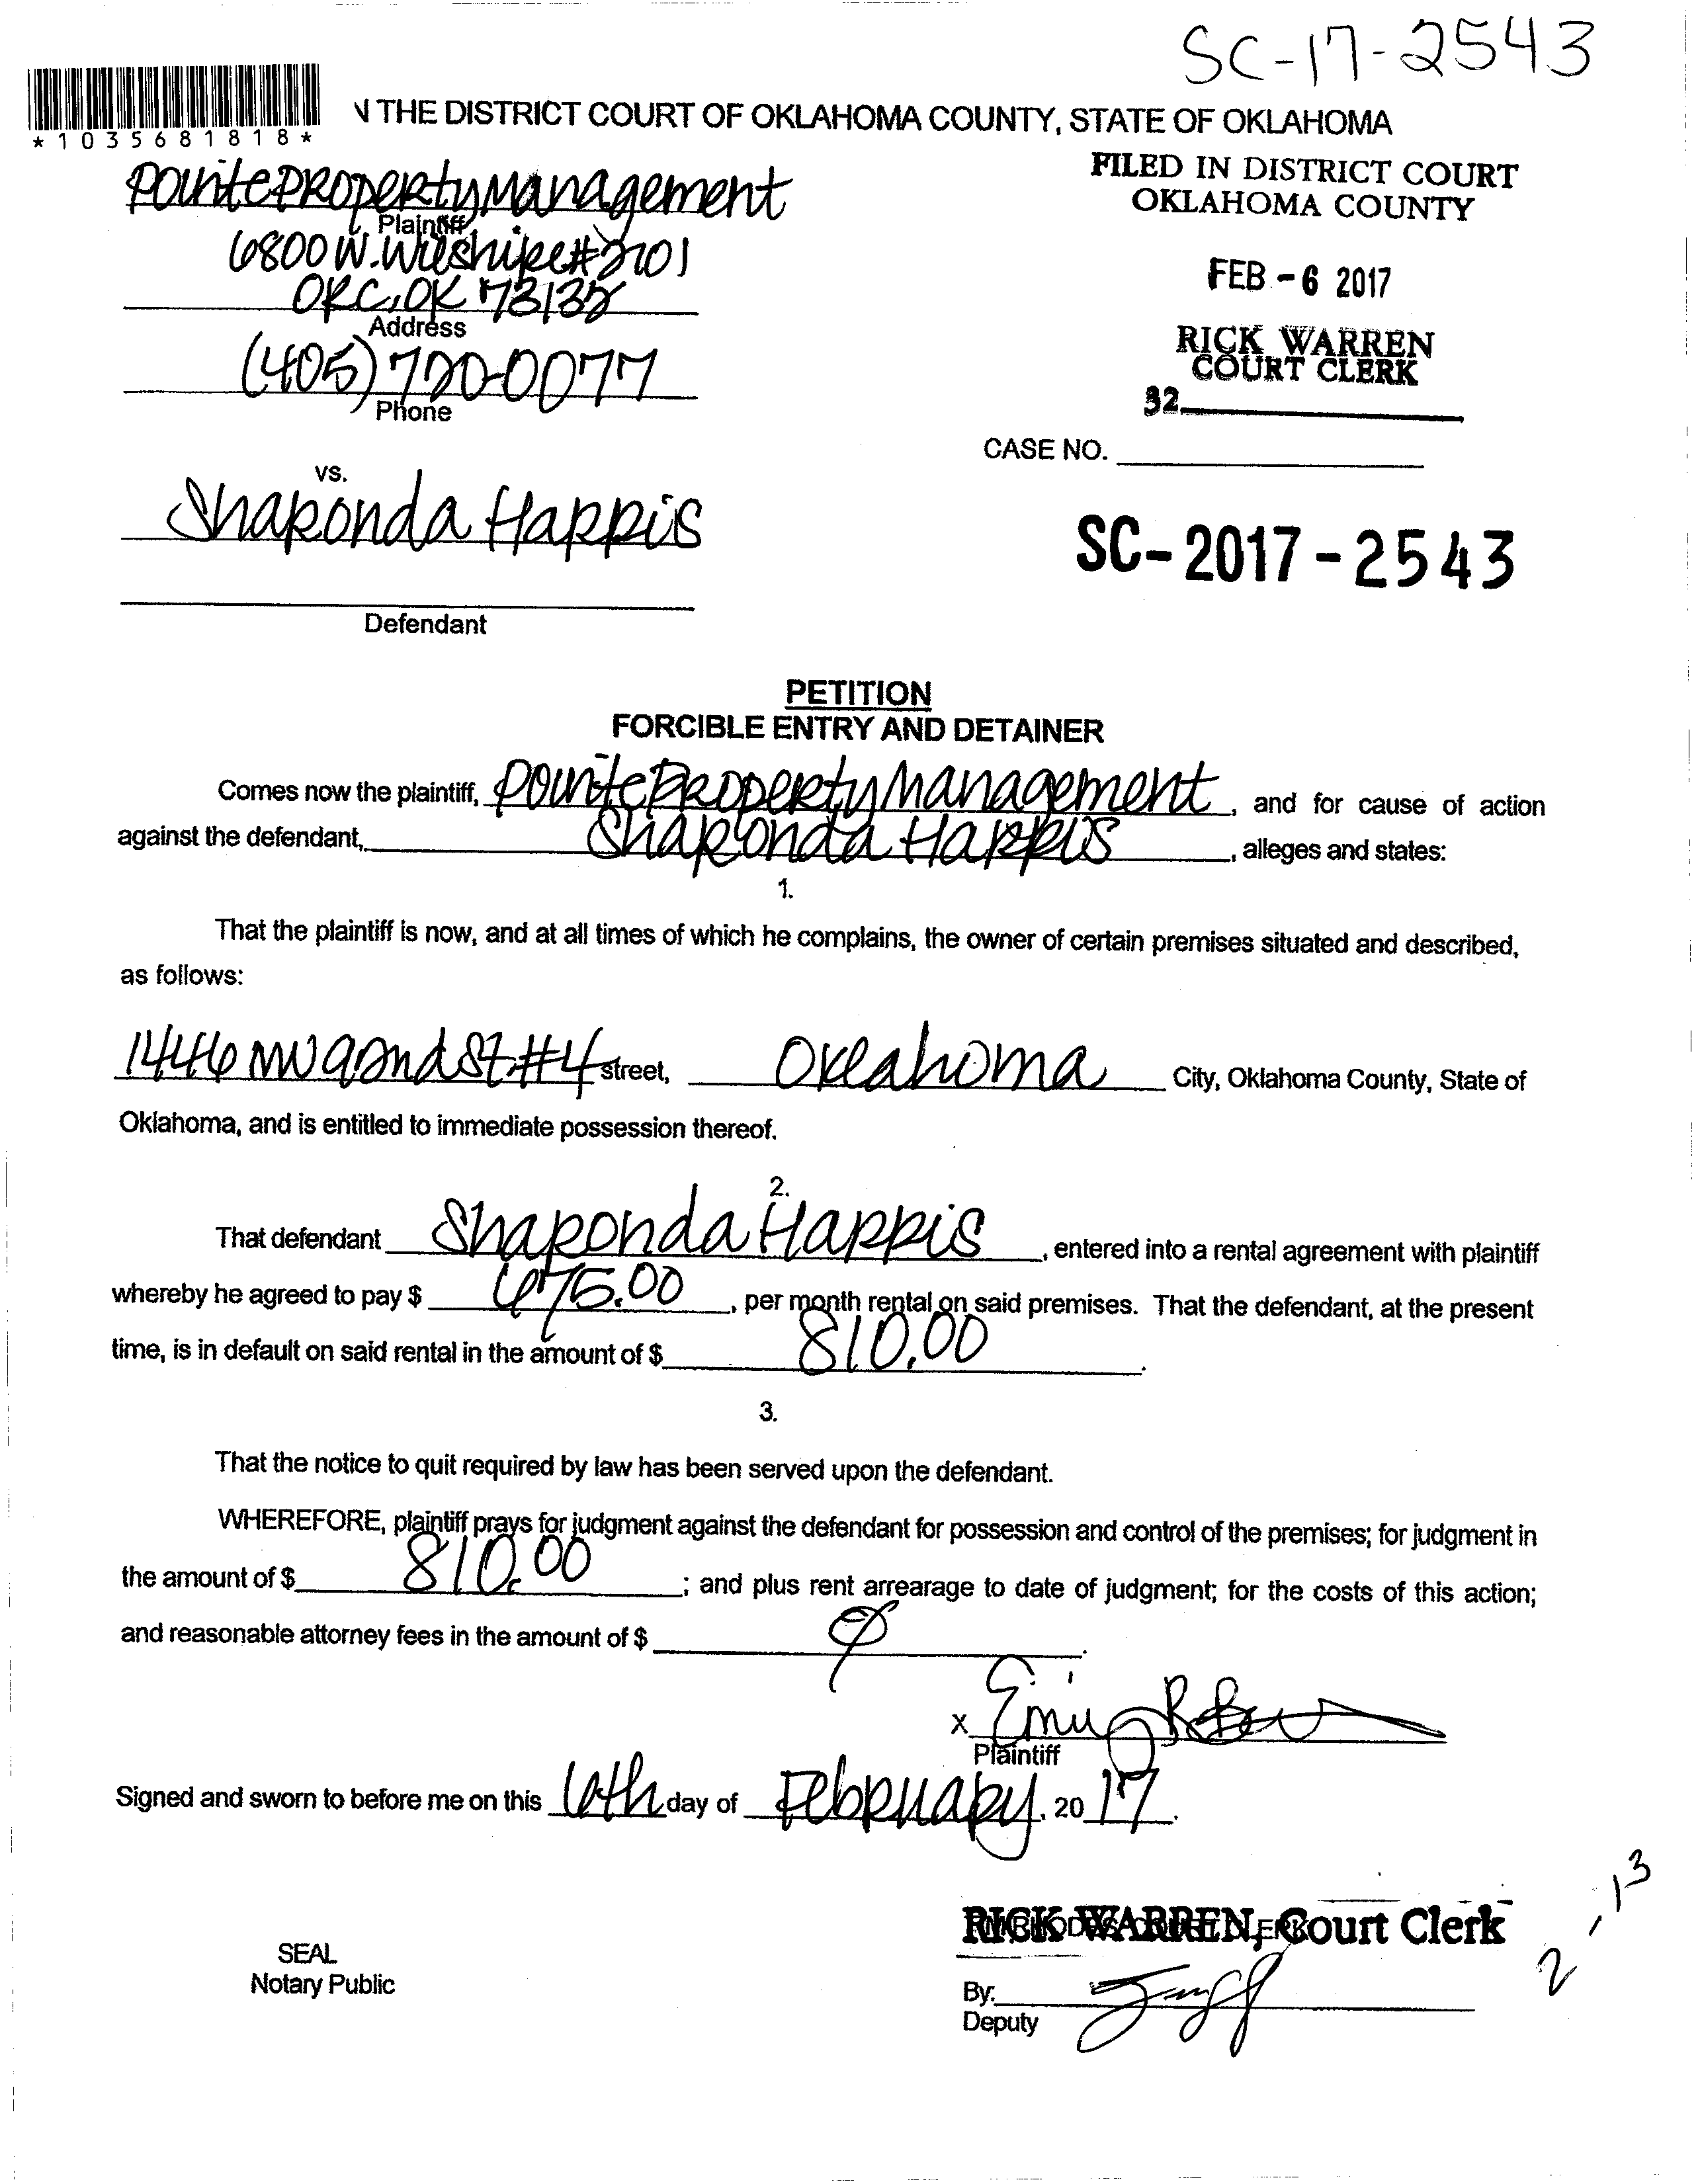 SC-17-2543
*1035681818*
N THE DISTRICT COURT OF OKLAHOMA COUNTY, STATE OF OKLAHOMA
Pointe Property Management
Plaintiff
6800 W. Wilshire #2101
OKC, OK 73132
Address
(405) 720-0077
Phone
FILED IN DISTRICT COURT
OKLAHOMA COUNTY
FEB - 6 2017
RICK WARREN
COURT CLERK
32
CASE NO.
vs.
Sharonda Harris
SC-2017-2543
Defendant
PETITION
FORCIBLE ENTRY AND DETAINER
Comes now the plaintiff, Pointe Property Management, and for cause of action
against the defendant, Sharonda Harris, alleges and states:
1.
That the plaintiff is now, and at all times of which he complains, the owner of certain premises situated and described,
as follows:
1446 NW 92nd St. #4 street, Oklahoma City, Oklahoma County, State of
Oklahoma, and is entitled to immediate possession thereof.
2.
That defendant Sharonda Harris, entered into a rental agreement with plaintiff
whereby he agreed to pay $ 675.00, per month rental on said premises. That the defendant, at the present
time, is in default on said rental in the amount of $ 810.00.
3.
That the notice to quit required by law has been served upon the defendant.
WHEREFORE, plaintiff prays for judgment against the defendant for possession and control of the premises; for judgment in
the amount of $ 810.00; and plus rent arrearage to date of judgment; for the costs of this action;
and reasonable attorney fees in the amount of $
X Emily
Plaintiff
Signed and sworn to before me on this 6th day of February, 2017.
RICK WARREN, Court Clerk
SEAL
Notary Public
By:
Deputy
2-13